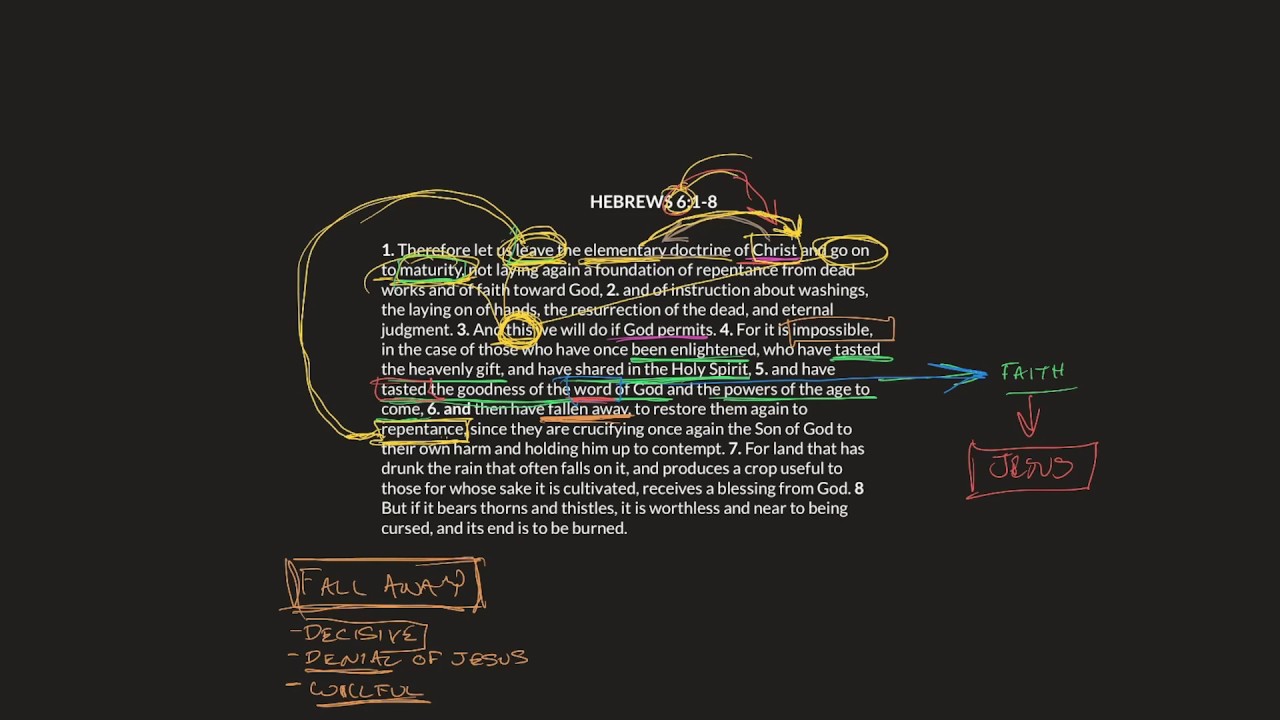 HEBREWS 6:1-8
1. Therefore let us leave the elementary doctrine of Christ and go on
to maturity, not laying again a foundation of repentance from dead
works and of faith toward God, 2. and of instruction about washings,
the laying on of hands, the resurrection of the dead, and eternal
judgment. 3. And this we will do if God permits. 4. For it is impossible,
in the case of those who have once been enlightened, who have tasted
the heavenly gift, and have shared in the Holy Spirit, 5. and have
tasted the goodness of the word of God and the powers of the age to
come, 6. and then have fallen away, to restore them again to
repentance, since they are crucifying once again the Son of God to
their own harm and holding him up to contempt. 7. For land that has
drunk the rain that often falls on it, and produces a crop useful to
those for whose sake it is cultivated, receives a blessing from God. 8
But if it bears thorns and thistles, it is worthless and near to being
cursed, and its end is to be burned.
FAITH
JESUS
FALL AWAY
- DECISIVE
- DENIAL OF JESUS
- WILLFUL